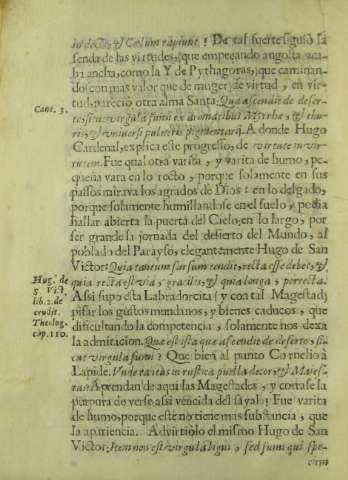 indocti, & Cœlum rapiunt? De tal suerte siguiò la
senda de las virtudes, (que empeçando angosta aca-
ba ancha, como la Y de Pythagoras,) que caminan-
do (con mas valor que de muger) de virtud, en vir-
tud, pareciò otra alma Santa: Quæ ascendit de deser-
Cant. 3.
to, sicut virgula fumi ex aromatibus Myrrhæ, & thu-
ris, & universi pulveris pigmentarij. A donde Hugo
Cardenal, explica este progresso, de virtute in vir-
tutem. Fue qual otra varita, y varita de humo, pe-
queña vara en lo recto, porque solamente en sus
passos mirava los agrados de Dios: en lo delgado,
porque solamente humillandose en el suelo, podia
hallar abierta la puerta del Cielo; en lo largo, por
ser grande la jornada del desierto del Mundo, al
poblado del Parayso, elegantemente Hugo de San
Victor: Quia tantum sursum tendit, recta esse debet, &
Hug. de
S. Vict.
lib. 2. de
erudit.
Theolog.
cap. 110.
quia recta est via, gracilis, & quia longa, porrecta.
Assi supo esta Labradorcita (y con tal Magestad)
pisar los gustos mundanos, y bienes caducos, que
dificultando la competencia, solamente nos dexa
la admiracion. Quæ est ista quæ ascendit de deserto, si-
cut virgula fumi? Que bien al punto Cornelio à
Lapide. Unde tantus in rustica puella decor, & Maies-
tas? Aprendan de aqui las Magestades, y corrase la
purpura de verse assi vencida del sayal: Fue varita
de humo, porque este no tiene mas substancia, que
la apariencia. Advirtiòlo el mismo Hugo de San
Victor: Item non est virgula ligni, sed fumi qui spe-
ciem